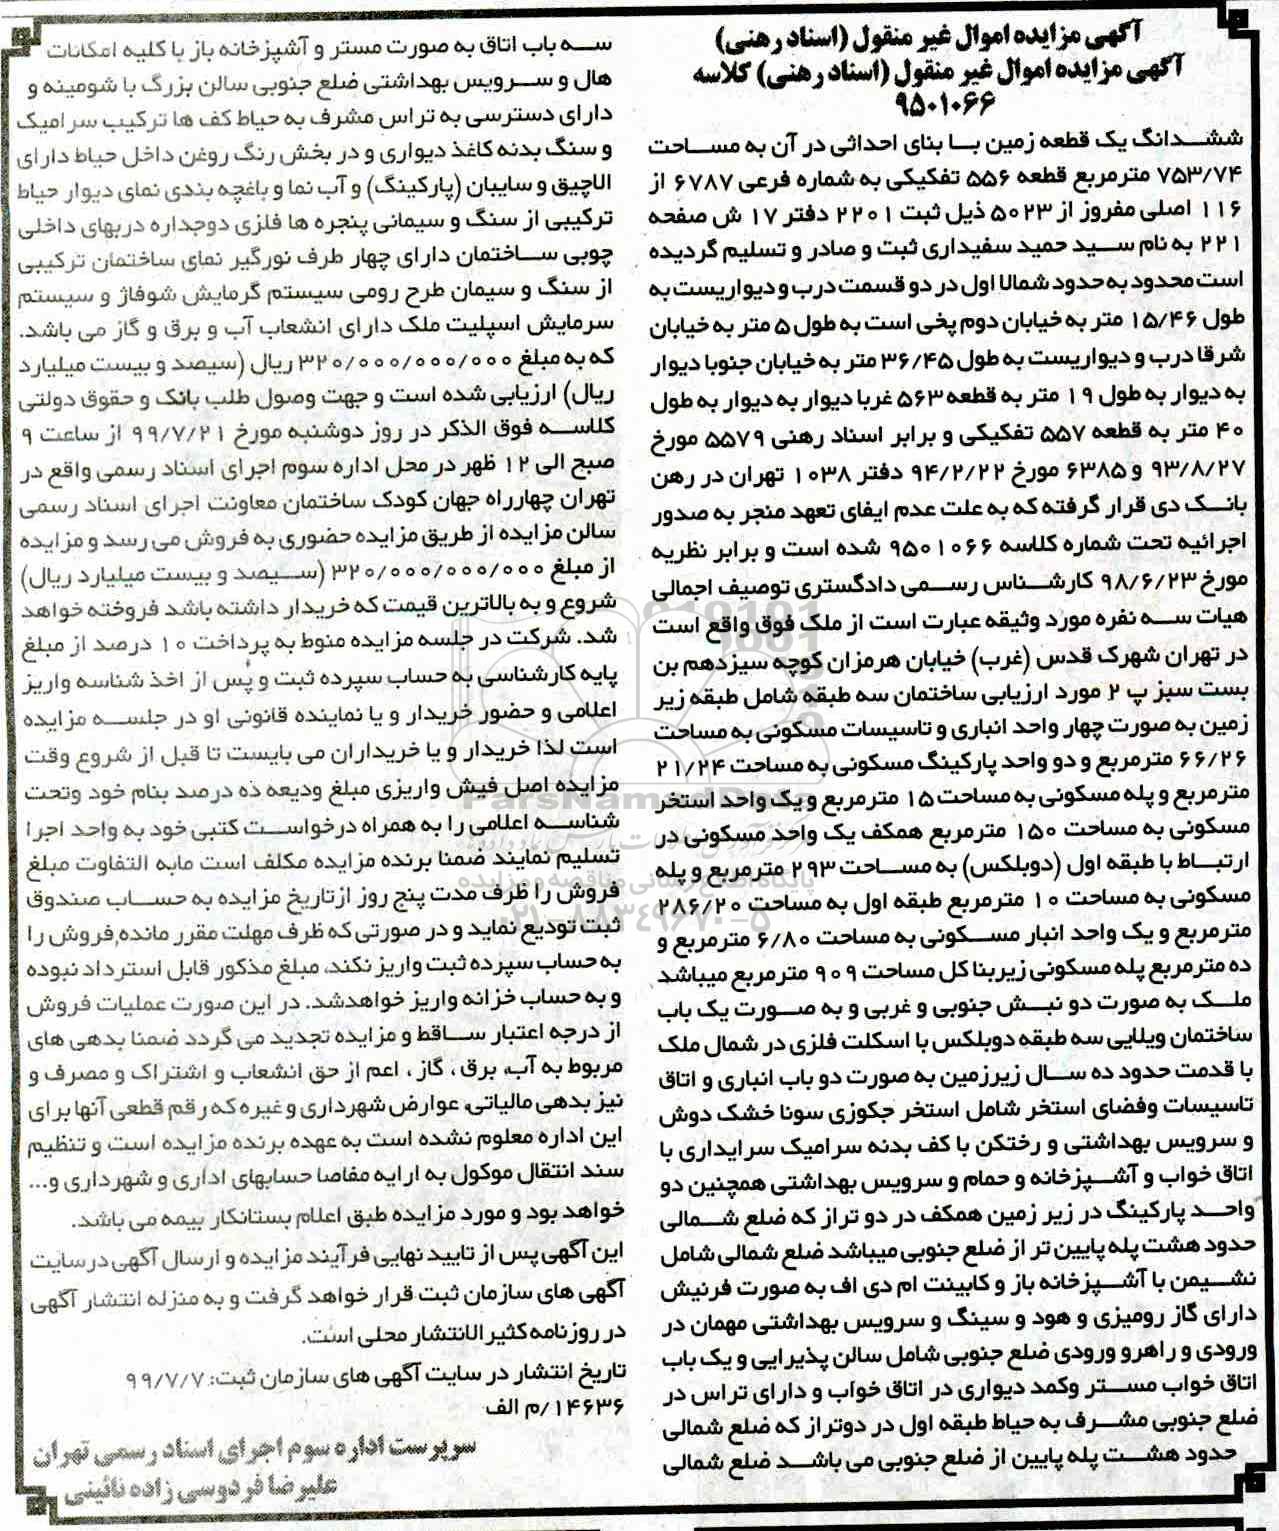 آگهی مزایده اموال غیر منقول (اسناد رهنی)
آگهی مزایده اموال غیر منقول (اسناد رهنی) کلاسه
۹۵۰۱۰۶۶
ششدانگ یک قطعه زمین با بنای احداثی در آن به مساحت
۷۵۳/۷۴ مترمربع قطعه ۵۵۶ تفکیکی به شماره فرعی ۶۷۸۷ از
۱۱۶ اصلی مفروز از ۵۰۲۳ ذیل ثبت ۲۲۰۱ دفتر ۱۷ ش صفحه
۲۲۱ به نام سید حمید سفیداری ثبت و صادر و تسلیم گردیده
است محدود به حدود شمالا اول در دو قسمت درب و دیواریست به
طول ۱۵/۴۶ متر به خیابان دوم پخی است به طول ۵ متر به خیابان
شرقا درب و دیواریست به طول ۳۶/۴۵ متر به خیابان جنوبا دیوار
به دیوار به طول ۱۹ متر به قطعه ۵۶۳ غربا دیوار به دیوار به طول
۴۰ متر به قطعه ۵۵۷ تفکیکی و برابر اسناد رهنی ۵۵۷۹ مورخ
۹۳/۸/۲۷ و ۶۳۸۵ مورخ ۹۴/۲/۲۲ دفتر ۱۰۳۸ تهران در رهن
بانک دی قرار گرفته که به علت عدم ایفای تعهد منجر به صدور
اجرائیه تحت شماره کلاسه ۹۵۰۱۰۶۶ شده است و برابر نظریه
مورخ ۹۸/۶/۲۳ کارشناس رسمی دادگستری توصیف اجمالی
هیات سه نفره مورد وثیقه عبارت است از ملک فوق واقع است
در تهران شهرک قدس (غرب) خیابان هرمزان کوچه سیزدهم بن
بست سبز پ ۲ مورد ارزیابی ساختمان سه طبقه شامل طبقه زیر
زمین به صورت چهار واحد انباری و تاسیسات مسکونی به مساحت
۶۶/۲۶ مترمربع و دو واحد پارکینگ مسکونی به مساحت ۲۱/۲۴
مترمربع و پله مسکونی به مساحت ۱۵ مترمربع و یک واحد استخر
مسکونی به مساحت ۱۵۰ مترمربع همکف یک واحد مسکونی در
ارتباط با طبقه اول (دوبلکس) به مساحت ۲۹۳ مترمربع و پله
مسکونی به مساحت ۱۰ مترمربع طبقه اول به مساحت ۲۸۶/۲۰
مترمربع و یک واحد انبار مسکونی به مساحت ۶/۸۰ مترمربع و
ده مترمربع پله مسکونی زیربنا کل مساحت ۹۰۹ مترمربع میباشد
ملک به صورت دو نبش جنوبی و غربی و به صورت یک باب
ساختمان ویلایی سه طبقه دوبلکس با اسکلت فلزی در شمال ملک
با قدمت حدود ده سال زیرزمین به صورت دو باب انباری و اتاق
تاسیسات وفضای استخر شامل استخر جکوزی سونا خشک دوش
و سرویس بهداشتی و رختکن با کف بدنه سرامیک سرایداری با
اتاق خواب و آشپزخانه و حمام و سرویس بهداشتی همچنین دو
واحد پارکینگ در زیر زمین همکف در دو تراز که ضلع شمالی
حدود هشت پله پایین تر از ضلع جنوبی میباشد ضلع شمالی شامل
نشیمن با آشپزخانه باز و کابینت ام دی اف به صورت فرنیش
دارای گاز رومیزی و هود و سینگ و سرویس بهداشتی مهمان در
ورودی و راهرو ورودی ضلع جنوبی شامل سالن پذیرایی و یک باب
اتاق خواب مستر وکمد دیواری در اتاق خواب و دارای تراس در
ضلع جنوبی مشرف به حیاط طبقه اول در دوتراز که ضلع شمالی
حدود هشت پله پایین از ضلع جنوبی می باشد ضلع شمالی
سه باب اتاق به صورت مستر و آشپزخانه باز با کلیه امکانات
هال و سرویس بهداشتی ضلع جنوبی سالن بزرگ با شومینه و
دارای دسترسی به تراس مشرف به حیاط کف ها ترکیب سرامیک
و سنگ بدنه کاغذ دیواری و در بخش رنگ روغن داخل حیاط دارای
الاچیق و سایبان (پارکینگ) و آب نما و باغچه بندی نمای دیوار حیاط
ترکیبی از سنگ و سیمانی پنجره ها فلزی دوجداره دربهای داخلی
چوبی ساختمان دارای چهار طرف نورگیر نمای ساختمان ترکیبی
از سنگ و سیمان طرح رومی سیستم گرمایش شوفاژ و سیستم
سرمایش اسپلیت ملک دارای انشعاب آب و برق و گاز می باشد.
که به مبلغ ۳۲۰/۰۰۰/۰۰۰/۰۰۰ ریال (سیصد و بیست میلیارد
ریال) ارزیابی شده است و جهت وصول طلب بانک و حقوق دولتی
کلاسه فوق الذکر در روز دوشنبه مورخ ۹۹/۷/۲۱ از ساعت ۹
صبح الی ۱۲ ظهر در محل اداره سوم اجرای اسناد رسمی واقع در
تهران چهارراه جهان کودک ساختمان معاونت اجرای اسناد رسمی
سالن مزایده از طریق مزایده حضوری به فروش می رسد و مزایده
از مبلغ ۳۲۰/۰۰۰/۰۰۰/۰۰۰ (سیصد و بیست میلیارد ریال)
شروع و به بالاترین قیمت که خریدار داشته باشد فروخته خواهد
شد. شرکت در جلسه مزایده منوط به پرداخت ۱۰ درصد از مبلغ
پایه کارشناسی به حساب سپرده ثبت و پس از اخذ شناسه واریز
اعلامی و حضور خریدار و یا نماینده قانونی او در جلسه مزایده
است لذا خریدار و یا خریداران می بایست تا قبل از شروع وقت
مزایده اصل فیش واریزی مبلغ ودیعه ده درصد بنام خود وتحت
شناسه اعلامی را به همراه درخواست کتبی خود به واحد اجرا
تسلیم نمایند ضمنا برنده مزایده مکلف است مابه التفاوت مبلغ
فروش را ظرف مدت پنج روز ازتاریخ مزایده به حساب صندوق
ثبت تودیع نماید و در صورتی که ظرف مهلت مقرر مانده,فروش را
به حساب سپرده ثبت واریز نکند، مبلغ مذکور قابل استرداد نبوده
و به حساب خزانه واریز خواهدشد. در این صورت عملیات فروش
از درجه اعتبار ساقط و مزایده تجدید می گردد ضمنا بدهی های
مربوط به آب، برق ، گاز ، اعم از حق انشعاب و اشتراک و مصرف و
نیز بدهی مالیاتی، عوارض شهرداری و غیره که رقم قطعی آنها برای
این اداره معلوم نشده است به عهده برنده مزایده است و تنظیم
سند انتقال موکول به ارایه مفاصا حسابهای اداری و شهرداری و...
خواهد بود و مورد مزایده طبق اعلام بستانکار بیمه می باشد.
این آگهی پس از تایید نهایی فرآیند مزایده و ارسال آگهی در سایت
آگهی های سازمان ثبت قرار خواهد گرفت و به منزله انتشار آگهی
در روزنامه کثیر الانتشار محلی است.
تاریخ انتشار در سایت آگهی های سازمان ثبت: ۹۹/۷/۷
۱۴۶۳۶/م الف
سرپرست اداره سوم اجرای اسناد رسمی تهران
علیرضا فردوسی زاده نائینی
ParsNamadData
پایگاه اطلاع رسانی مناقصه و مزایده
۰۲۱-۸۸۳۴۹۶۷۰-۵